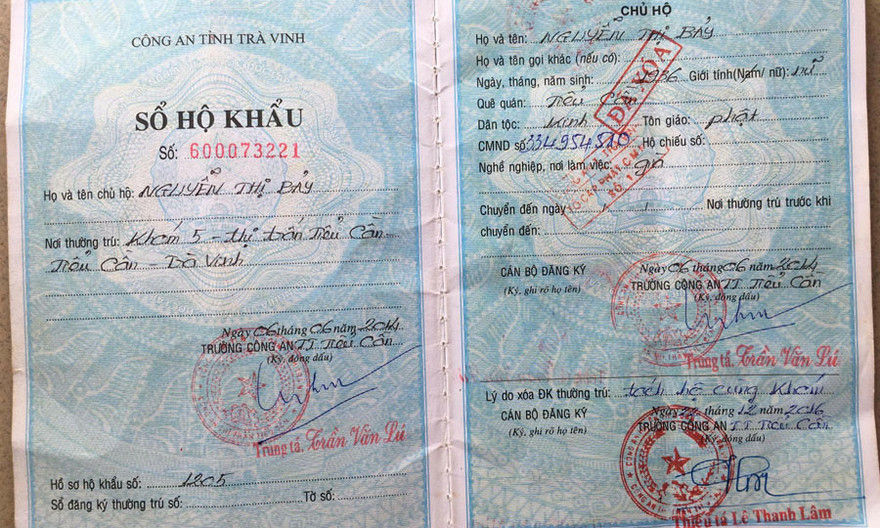 CÔNG AN TỈNH TRÀ VINH
SỔ HỘ KHẨU
Số: 600073221
Họ và tên chủ hộ: NGUYỄN THỊ BẢY
Nơi thường trú: Khóm 5 - thị trấn Tiểu Cần
Tiểu Cần - Trà Vinh
Ngày 06 tháng 06 năm 2014
TRƯỞNG CÔNG AN TT Tiểu Cần
(Ký, đóng dấu)
Trung tá. Trần Văn Lú
Hồ sơ hộ khẩu số: 1205
Sổ đăng ký thường trú số: Tờ số:
CHỦ HỘ
Họ và tên: NGUYỄN THỊ BẢY
Họ và tên gọi khác (nếu có):
Ngày, tháng, năm sinh: 1936 Giới tính(Nam/ nữ): nữ
Quê quán: Tiểu Cần
Dân tộc: Kinh Tôn giáo: phật
CMND số: Hộ chiếu số:
Nghề nghiệp, nơi làm việc: già
ĐÃ XÓA
Chuyển đến ngày / / Nơi thường trú trước khi
chuyển đến:
Ngày 06 tháng 06 năm 2014
CÁN BỘ ĐĂNG KÝ TRƯỞNG CÔNG AN TT Tiểu Cần
(Ký, ghi rõ họ tên) (Ký, đóng dấu)
Trung tá. Trần Văn Lú
Lý do xóa ĐK thường trú: tách hộ cùng Khóm
CÁN BỘ ĐĂNG KÝ Ngày 22 tháng 12 năm 2016
(Ký, ghi rõ họ tên) TRƯỞNG CÔNG AN TT Tiểu Cần
Thiếu tá Lê Thanh Lâm